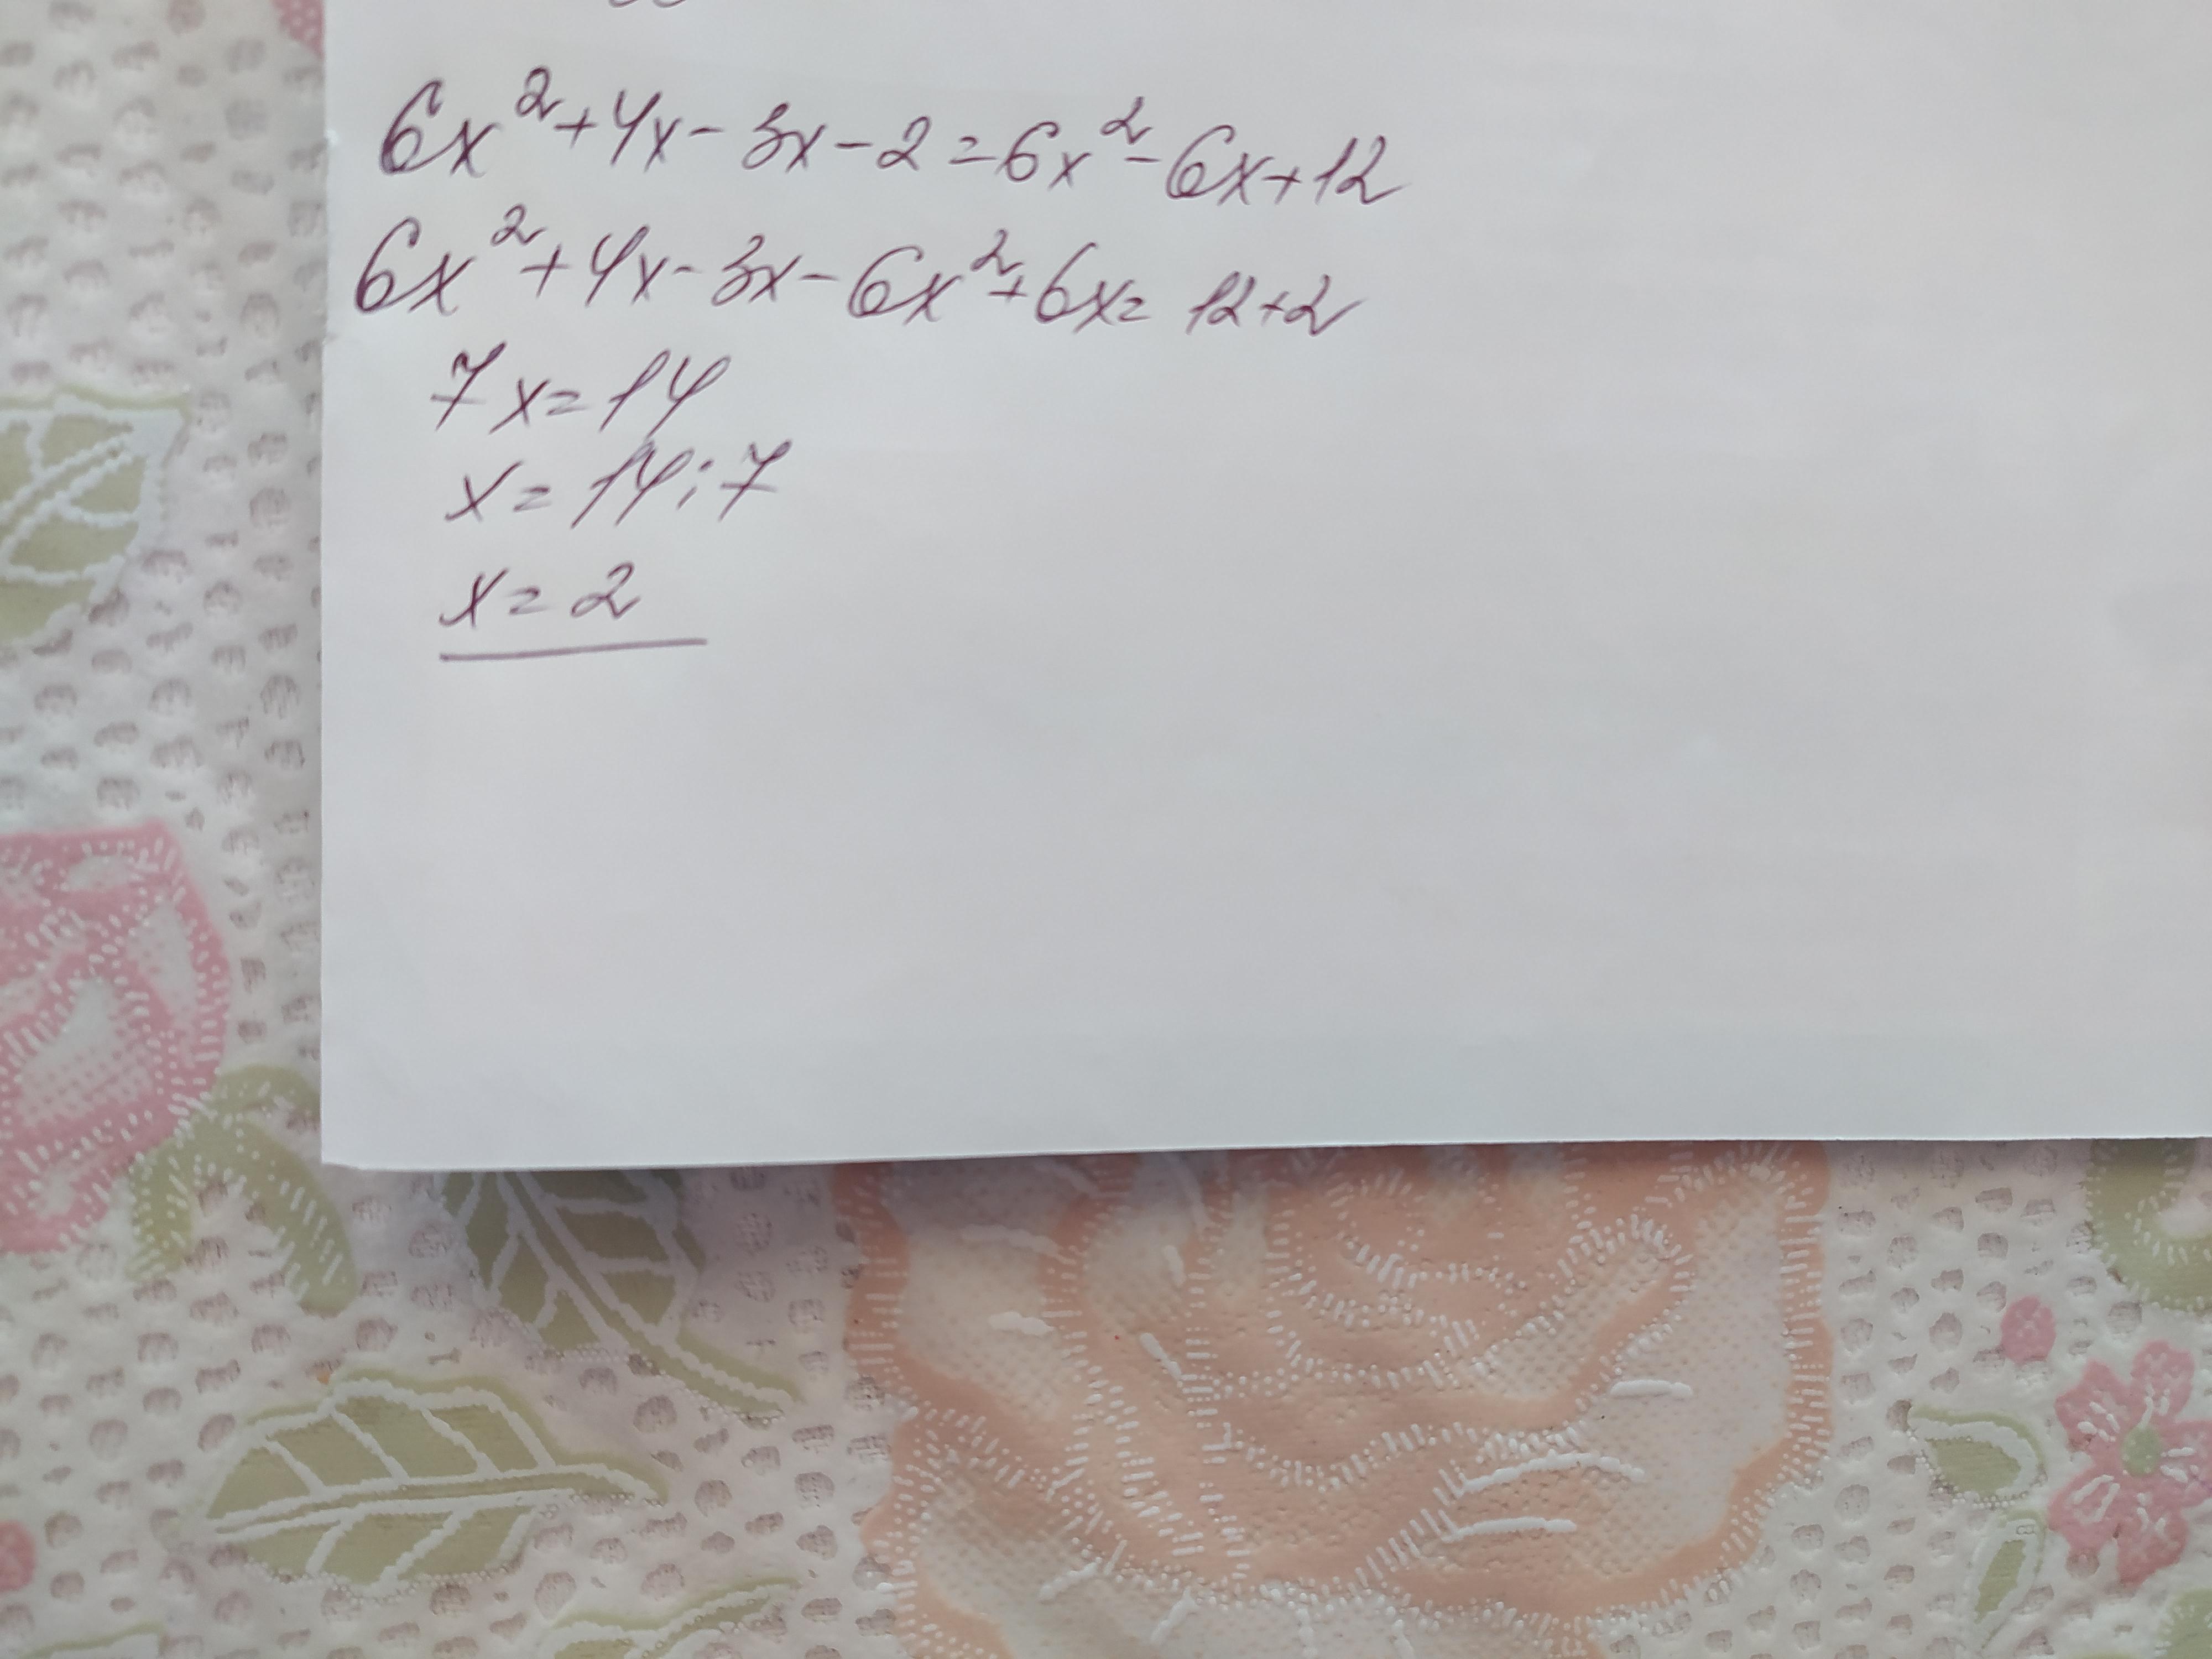 6x²+4x-3x-2=6x²-6x+12
6x²+4x-3x-6x²+6x=12+2
7x=14
x=14:7
x=2